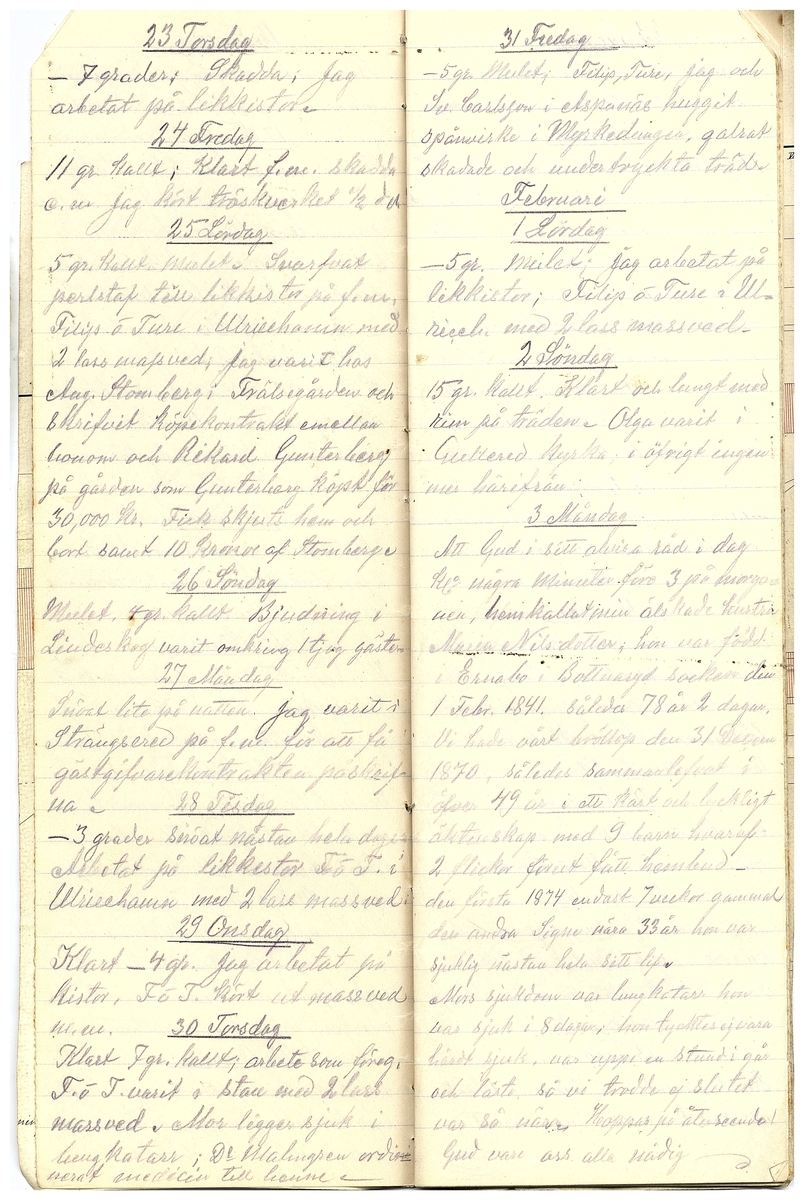 23 Torsdag
— 7 grader; Skadda; Jag
arbetat på likkistor.
24 Fredag
11 gr. kallt; Klart f.m. skadda
e.m. Jag kört tröskverket ½ da
25 Lördag
5 gr. kallt mulet. Svarfvat
perlstaf till likkistor på f.m.
Filip o Ture i Ulricehamn med
2 lass massved; jag varit hos
Aug. Stomberg i Frälsegården och
skrifvit köpekontrakt emellan
honom och Rikard Gunterberg
på gården som Gunterberg köpt för
30,000 Kr. Fick skjuts hem och
bort samt 10 Kronor af Stomberg.
26 Söndag
Mulet. 4 gr. kallt. Bjudning i
Lindeskog varit omkring 1 tjog gäster
27 Måndag
Snöat lite på natten. jag varit i
Strängsered på f.m. för att få
gästgifvarekontrakten påskrif-
na.
28 Tisdag
— 3 grader snöat nästan hela dagen
Arbetat på likkistor F. o T. i
Ulricehamn med 2 lass massved
29 Onsdag
Klart — 4 gr. Jag arbetat på
kistor. F o T. kört ut massved
m.m.
30 Torsdag
Klart 7 gr. kallt; arbete som föreg.
F. o T. varit i stan med 2 lass
massved. Mor ligger sjuk i
lungkatarr; Dr. Malmgren ordi-
nerat medicin till henne.
31 Fredag
— 5 gr. Mulet; Filip, Ture, jag och
Sv. Carlsson i Aspanäs huggit
spånvirke i Myrkedingen, galrat
skadade och undertryckta träd.
Februari
1 Lördag
— 5 gr. Mulet; jag arbetat på
likkistor; Filip o Ture i Ul-
riceh. med 2 lass massved.
2 Söndag
15 gr. kallt. Klart och lungt med
rim på träden. Olga varit i
Gullered kyrka i öfrigt ingen
mer härifrån.
3 Måndag
Att Gud i sitt allvisa råd i dag
Kl. några minuter före 3 på morgo-
nen, hemkallat min älskade hustru
Maria Nilsdotter; hon var född
i Ernabo i Bottnaryd socken den
1 Febr. 1841. således 78 år 2 dagar.
Vi hade vårt bröllop den 31 Decem
1870, således sammanlefvat i
öfver 49 år i ett kärt och lyckligt
äktenskap med 9 barn hvaraf
2 flickor förut fått hembud —
den första 1874 endast 7 veckor gammal
den andra Signe nära 33 år hon var
sjuklig nästan hela sitt lif.
Mors sjukdom var lungkatarr hon
var sjuk i 8 dagar, hon tycktes ej vara
hårdt sjuk, var uppe en stund i går
och läste så vi trodde ej slutet
var så nära. Hoppas på återseende!
Gud vare oss alla nådig